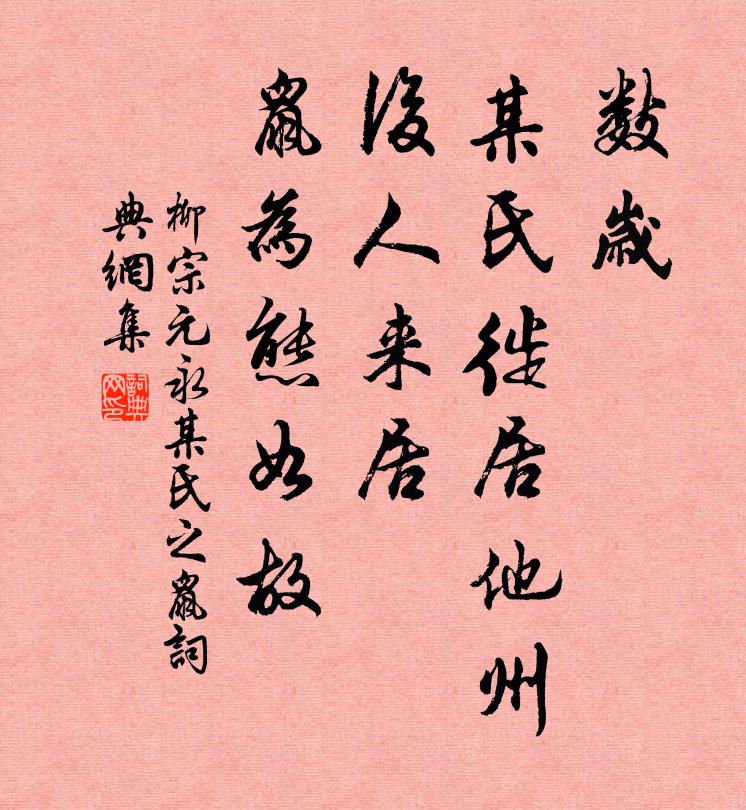 数歲
某氏徙居他州
後人来居
鼠為態如故
柳宗元永某氏之鼠詞
典網集
詞典網印